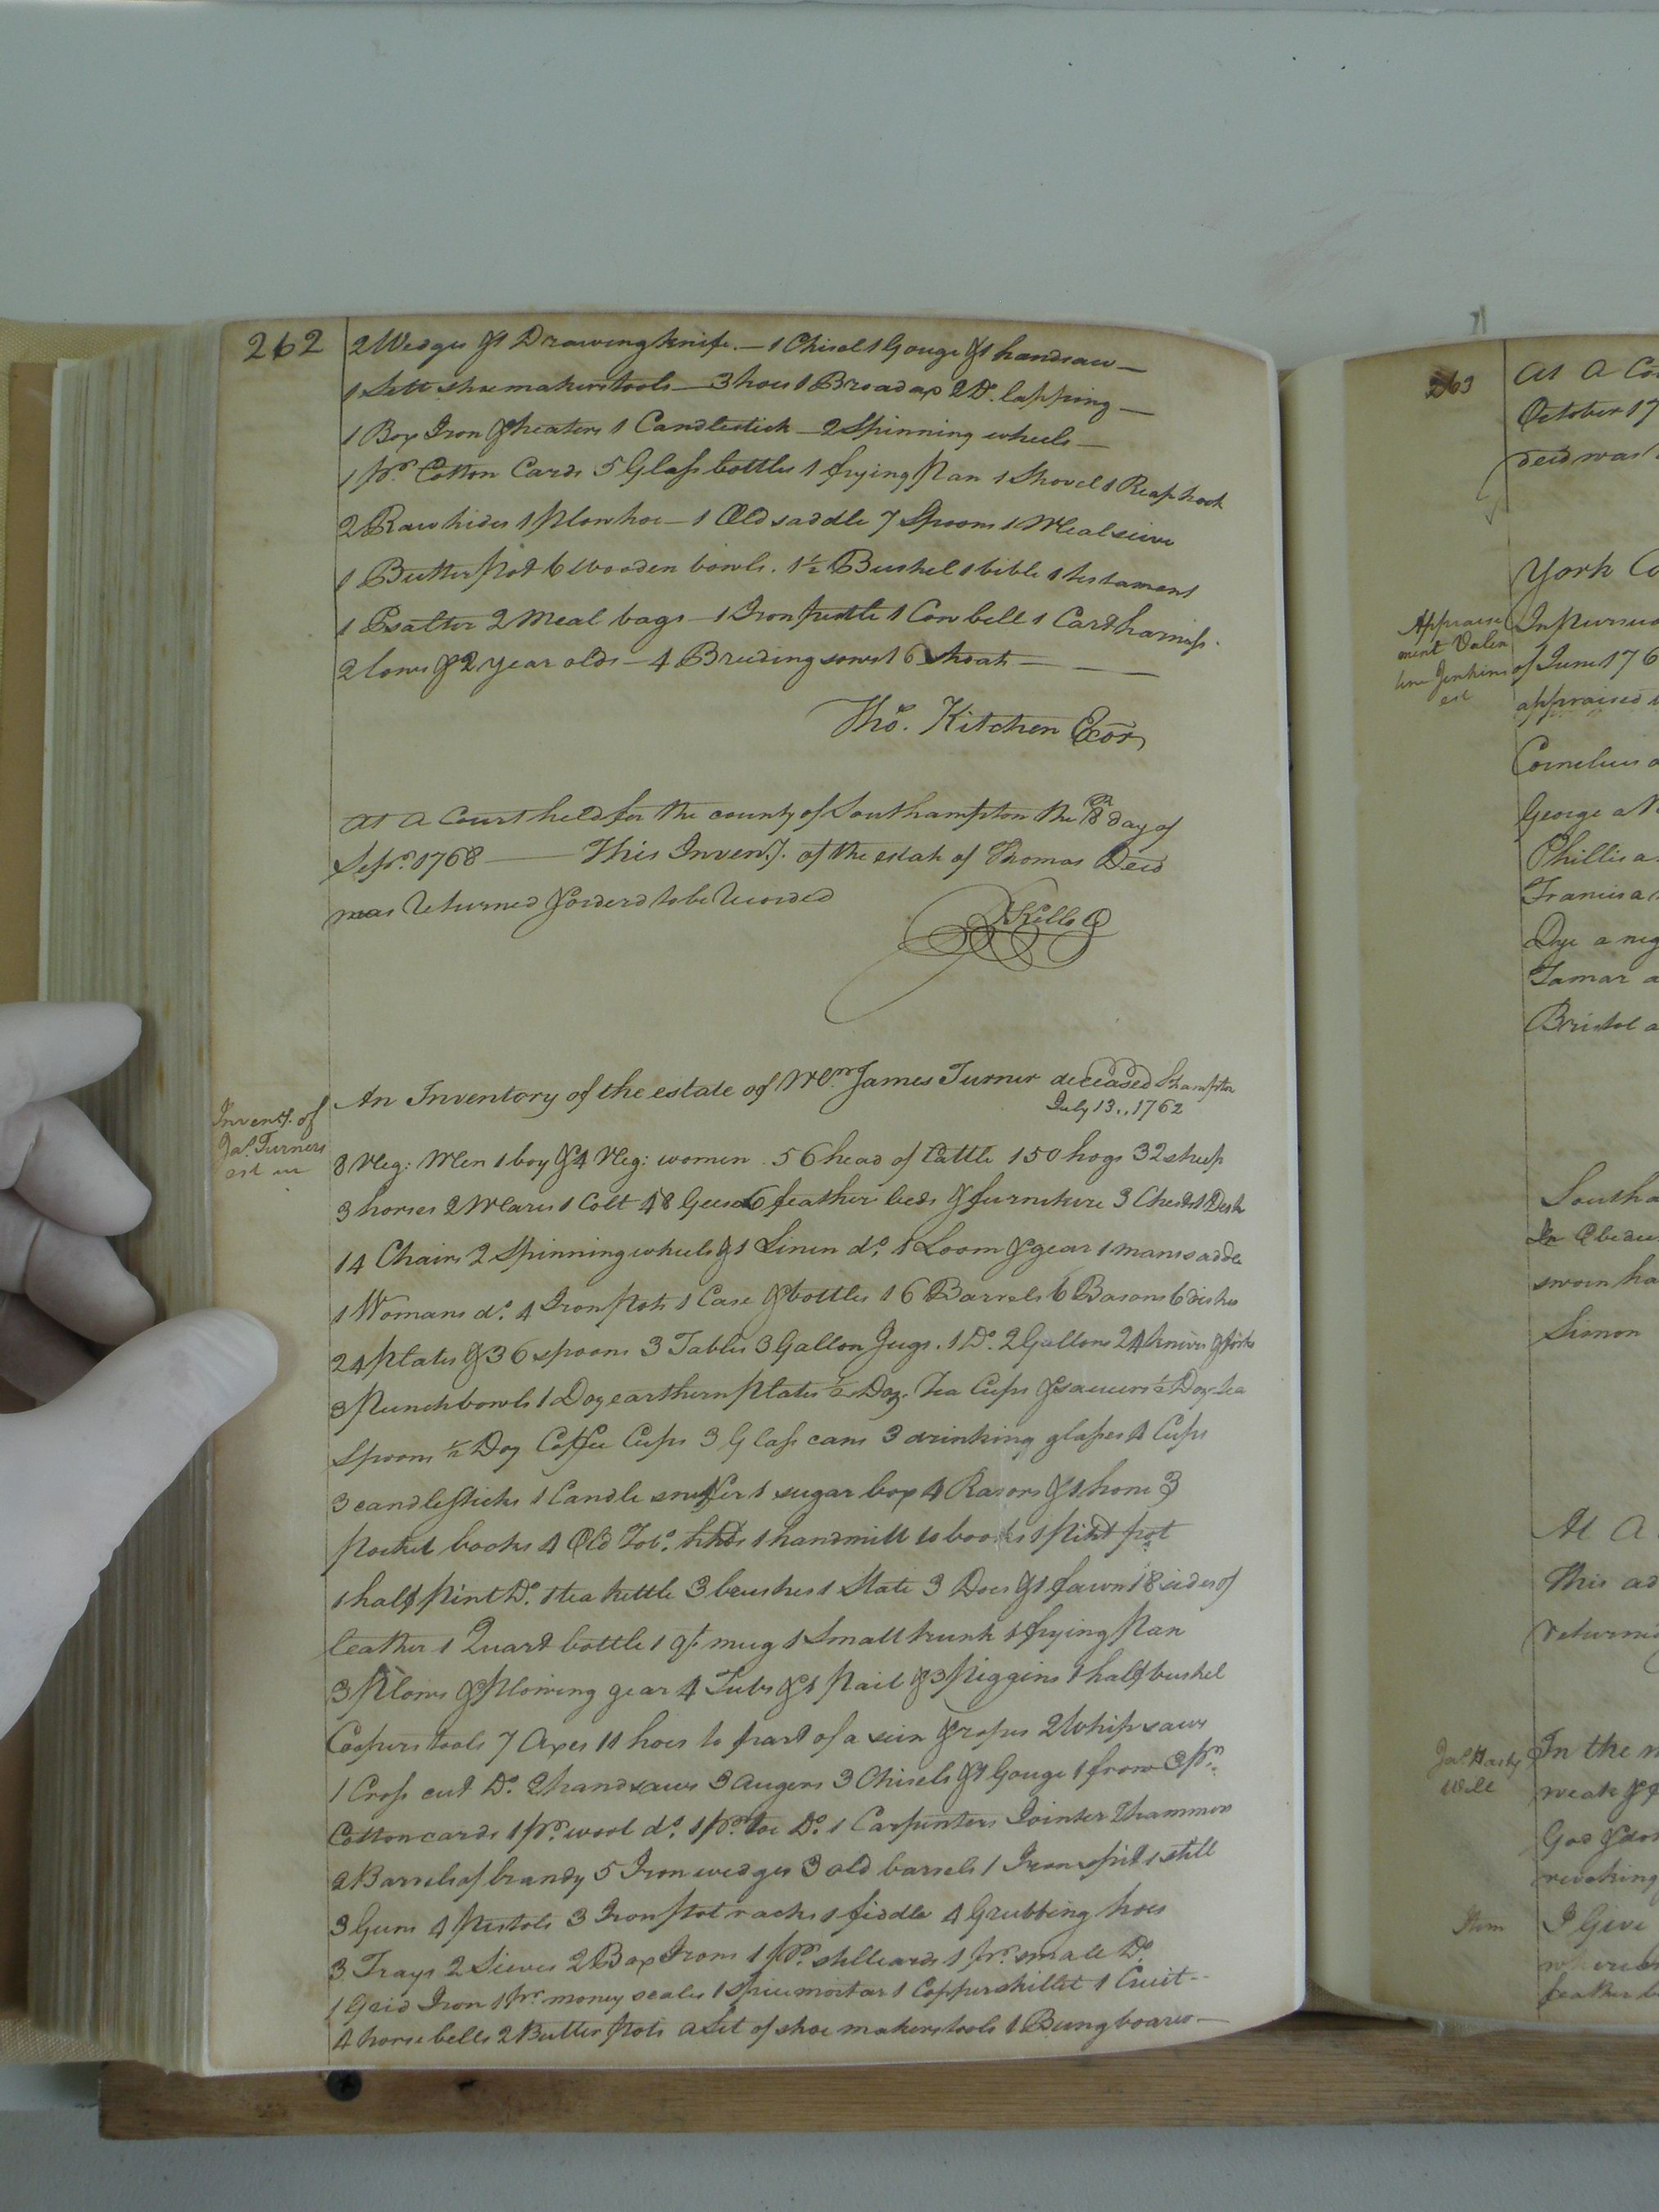 262
2 Wedges & 1 Drawing knife. — 1 Chisel 1 Gouge & 1 handsaw —
1 Sett shoemakers tools — 3 hoes 1 Broad ax 2 Do. lapping —
1 Box Iron & heaters 1 Candlestick — 2 Spinning wheels —
1 pr. Cotton Cards 5 Glass bottles 1 frying Pan 1 Shovel 1 Reap hook
2 Raw hides 1 Plow hoe — 1 Old saddle 7 Spoons 1 Meal sieve
1 Butter Pot 6 Wooden bowls. 1 ½ Bushel 1 bible 1 testament
1 Psalter 2 Meal bags — 1 Iron pestle 1 Cow bell 1 Cart harness.
2 Cows & 2 year olds — 4 Breeding sows 16 Shoats —
Tho. Kitchen Exor
At A Court held for the county of Southampton the 8th day of
Sepr. 1768 — This Inventy. of the estate of Thomas Deed
was returned & orderd to be recorded
R Kello C
Inventy. of
Jas. Turners
est
An Inventory of the estate of Wm. James Turner deceased Shampton
July 13., 1762
8 Neg: Men 1 boy & 4 Neg: women 56 head of Cattle 150 hogs 32 sheep
3 horses 2 Mares 1 Colt 48 Geese 6 feather beds & furniture 3 Chests 1 Desk
14 Chairs 2 Spinning wheels & 1 Linen do. 1 Loom & gear 1 mans saddle
1 Womans do. 4 Iron Pots 1 Case & bottles 16 Barrels 6 Basons 6 dishes
24 Plates & 36 spoons 3 Tables 3 Gallon Jugs. 1 Do. 2 Gallons 24 knives & forks
3 Punch bowls 1 Doz earthern Plates ½ Doz. Tea Cups & saucers ½ Doz. tea
Spoons ½ Doz Coffee Cups 3 Glass cans 3 drinking glasses 4 Cups
3 candlesticks 1 Candle snuffer 1 sugar box 4 Rasors & 1 hone 3
Pocket books 4 Old Tob. hhds 1 handmill 10 books 1 Pint pot
1 half Pint Do. 1 tea kettle 3 brushes 1 Slate 3 Does & 1 fawn 18 sides of
leather 1 Quart bottle 1 qt mug 1 Small trunk 1 frying Pan
3 Plows & Plowing gear 4 Tubs & 1 Pail & 3 Piggins 1 half bushel
Coopers tools 7 Axes 11 hoes to part of a sein & ropes 2 Whip saws
1 Cross cut Do. 2 hand saws 3 Augers 3 Chisels & 1 Gouge 1 frow 3 pr.
Cotton cards 1 pr. wool do. 1 pr. toe Do. 1 Carpenters Jointer 2 hammers
2 Barrels of brandy 5 Iron wedges 3 old barrels 1 Iron spit 1 still
3 Guns 4 Pistols 3 Iron Pot racks 1 fiddle 4 Grubbing hoes
3 Trays 2 Sieves 2 Box Irons 1 pr. stilleards 1 pr. small Do.
1 Grid Iron 1 pr. money scales 1 Spice mortar 1 Copper skillet 1 Cruit --
4 horse bells 2 Butter Pots a Set of shoe makers tools 1 Bung boarer —
263
At A Co
October 17
deed was
York Co
Appraise
ment Valen
tine Jenkins
est
In Pursua
of June 176
appraised
Cornelius a
George a N
Phillis a
Francis a
Dye a neg
Tamar a
Bristol a
Southa
In Obedie
sworn ha
Simon
At A
This ad
returned
Jas. Harty
Will
In the n
weak &
God & dos
revoking
Item
I Give
feather b